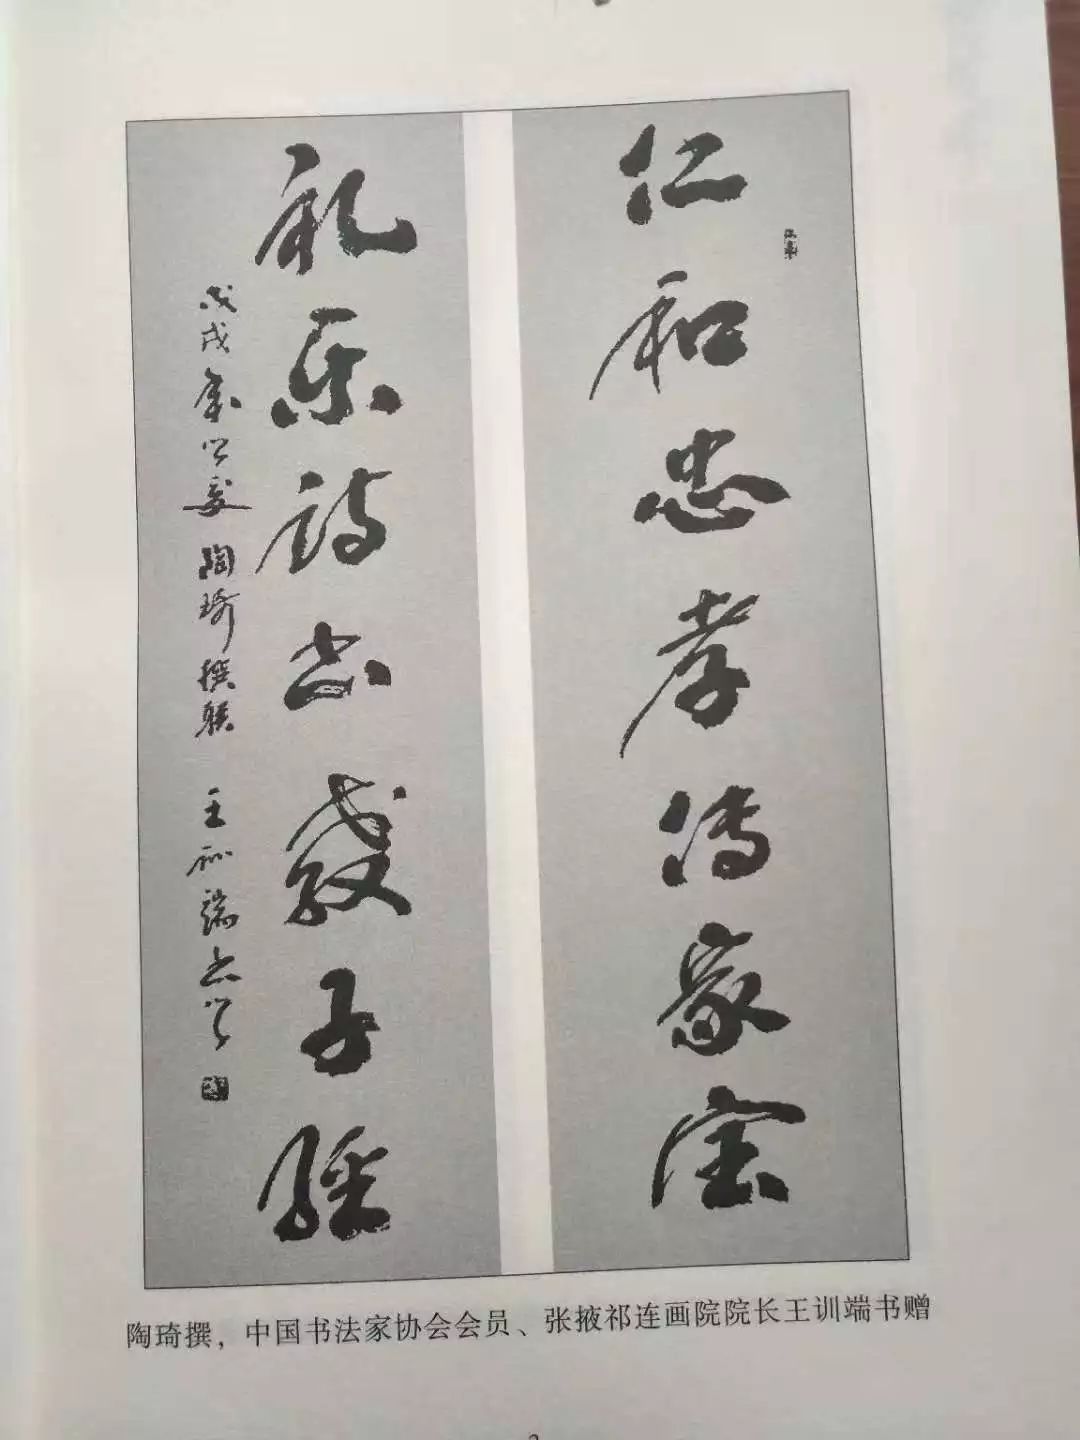 仁和忠孝传家宝
礼乐诗书教子经
戊戌年 陶琦撰联 王训端书
陶琦撰，中国书法家协会会员、张掖祁连画院院长王训端书赠